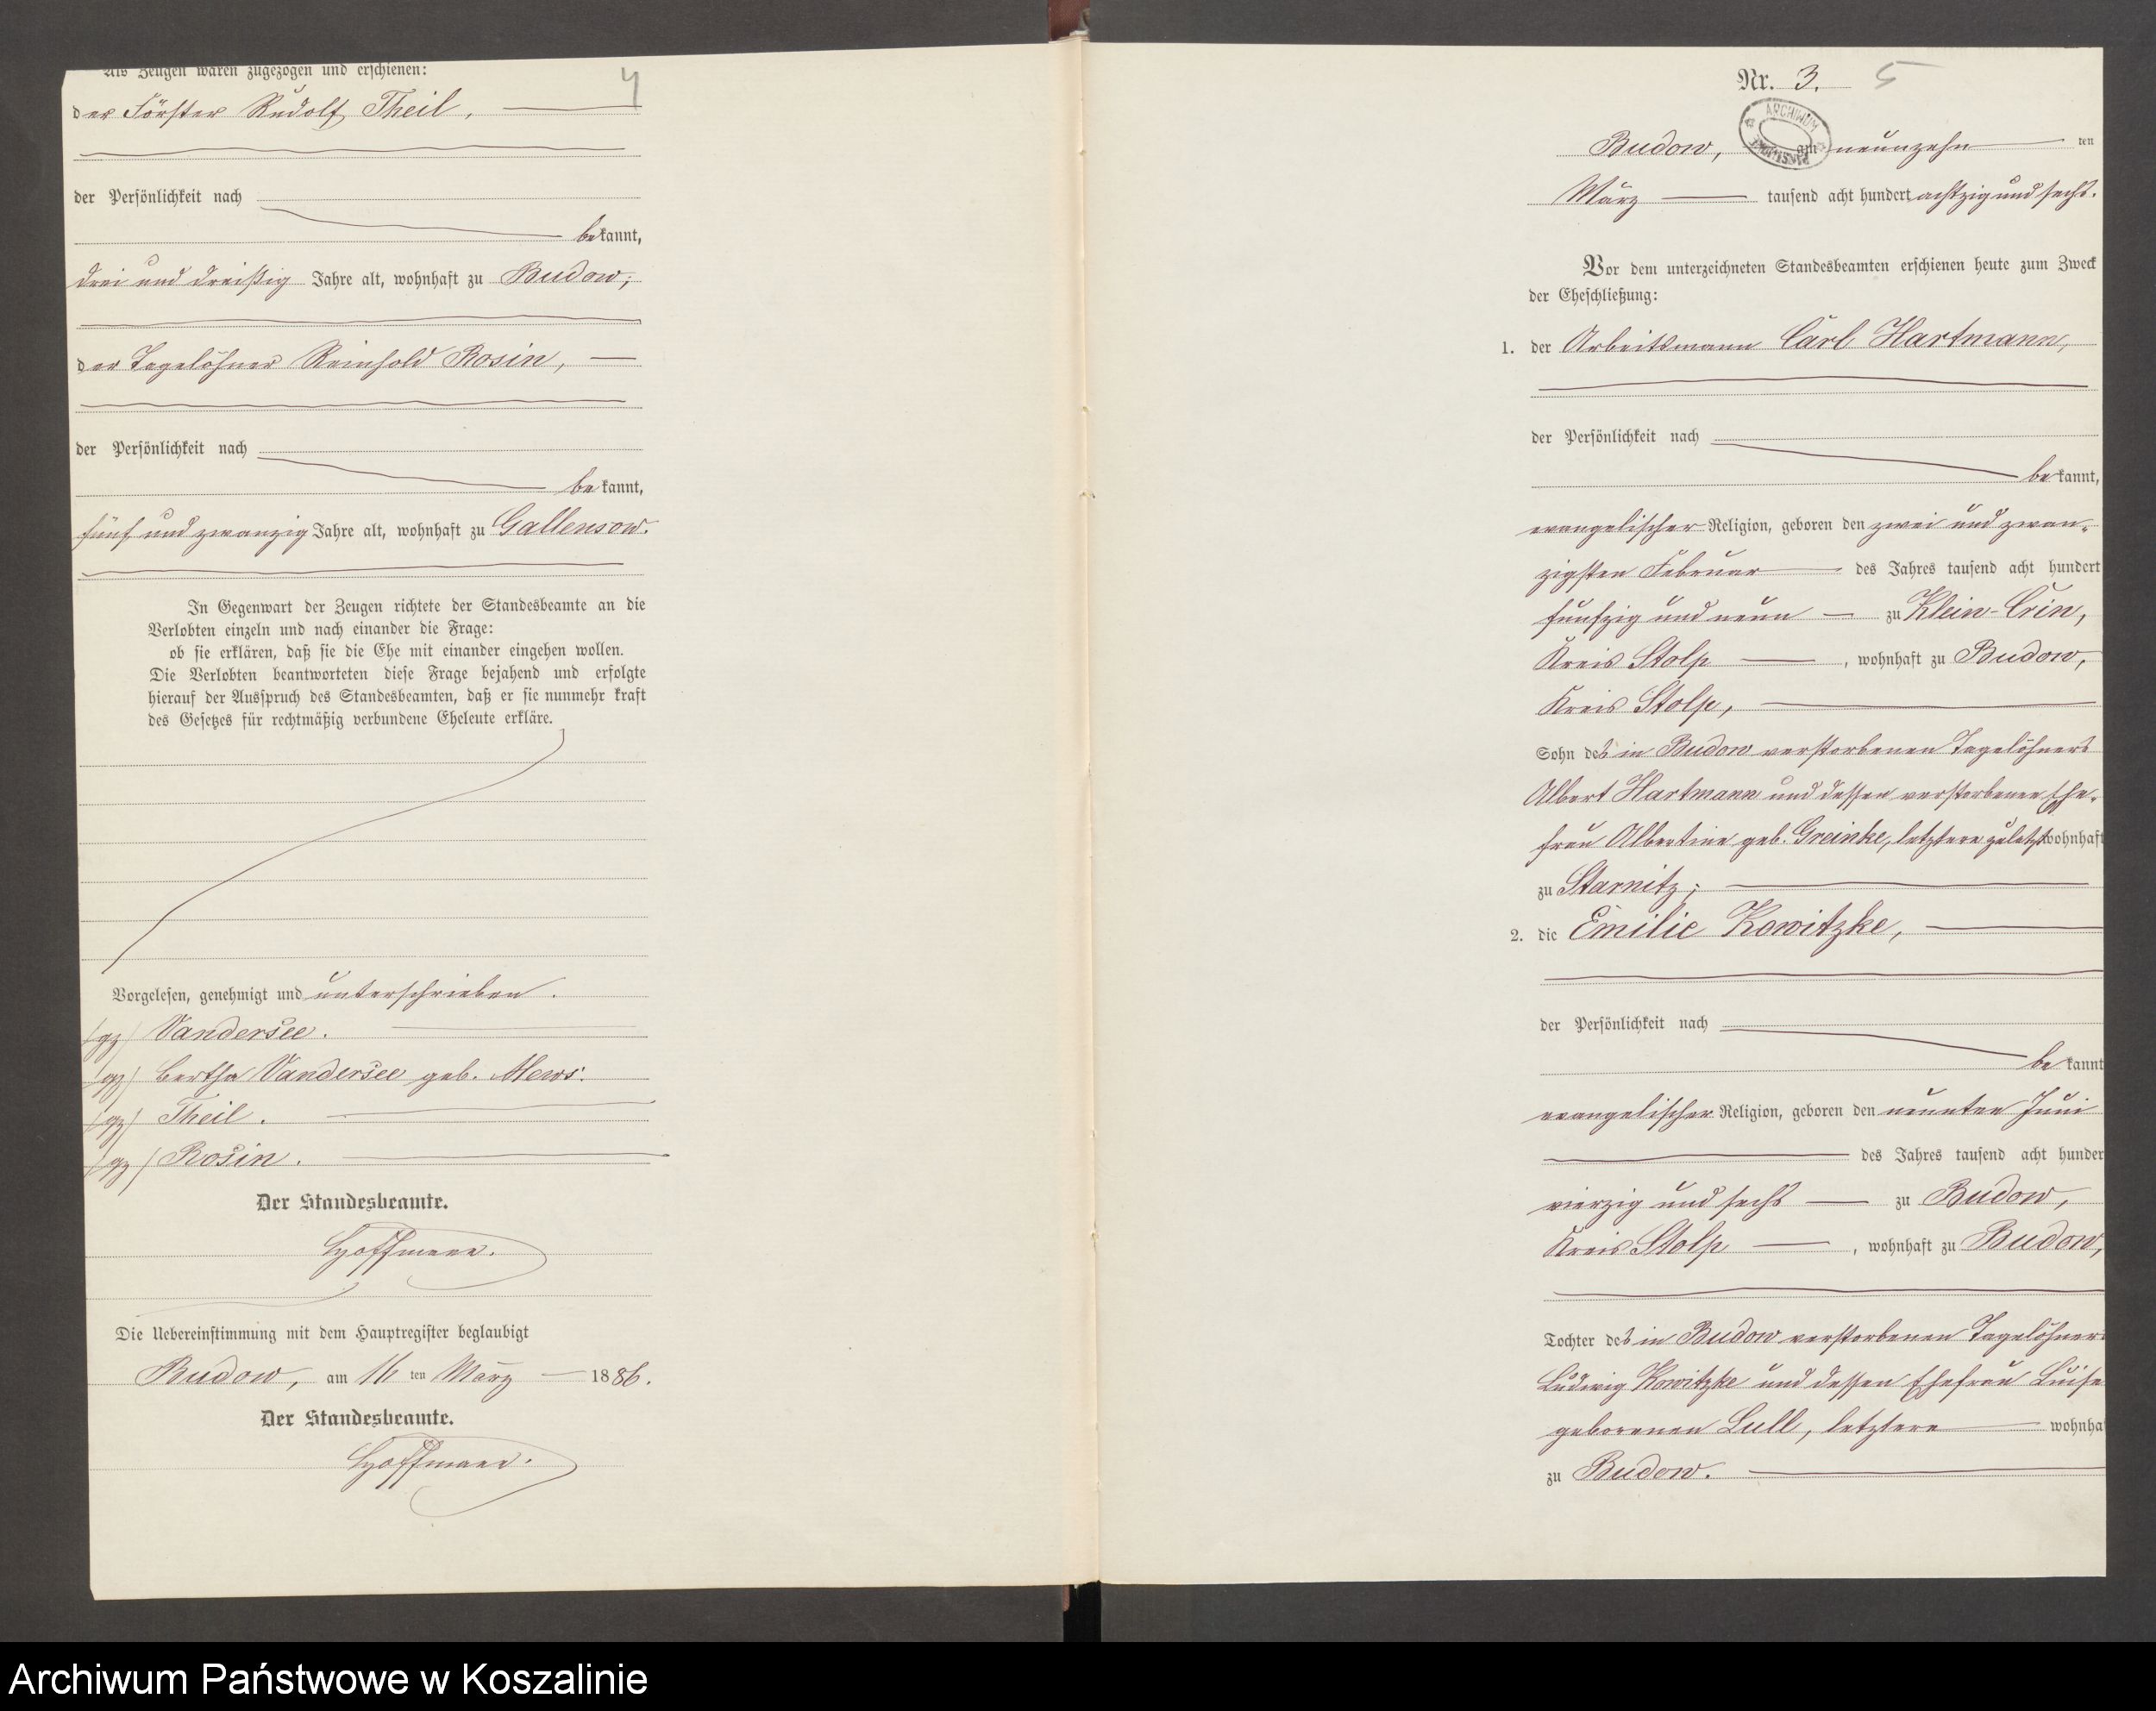 Als Zeugen waren zugezogen und erschienen:
4
der Förster Rudolf Theil,
der Persönlichkeit nach
bekannt,
drei und dreißig Jahre alt, wohnhaft zu Budow;
der Tagelöhner Reinhold Rosin,
der Persönlichkeit nach
bekannt,
fünf und zwanzig Jahre alt, wohnhaft zu Gallensow.
In Gegenwart der Zeugen richtete der Standesbeamte an die
Verlobten einzeln und nach einander die Frage:
ob sie erklären, daß sie die Ehe mit einander eingehen wollen.
Die Verlobten beantworteten diese Frage bejahend und erfolgte
hierauf der Ausspruch des Standesbeamten, daß er sie nunmehr kraft
des Gesetzes für rechtmäßig verbundene Eheleute erkläre.
Vorgelesen, genehmigt und unterschrieben.
(gz) Vandersee.
(gz) Bertha Vandersee geb. Mews.
(gz) Theil.
(gz) Rosin.
Der Standesbeamte.
Hoffmann.
Die Uebereinstimmung mit dem Hauptregister beglaubigt
Budow, am 16 ten März 1886.
Der Standesbeamte.
Hoffmann.
Nr. 3.
5
ARCHIWUM
Budow, am neunzehn ten
März tausend acht hundert achtzig und sechs.
Vor dem unterzeichneten Standesbeamten erschienen heute zum Zweck
der Eheschließung:
1. der Arbeitsmann Carl Hartmann,
der Persönlichkeit nach
bekannt,
evangelischer Religion, geboren den zwei und zwan-
zigsten Februar des Jahres tausend acht hundert
fünfzig und neun zu Klein-Crien,
Kreis Stolp, wohnhaft zu Budow,
Kreis Stolp,
Sohn des in Budow verstorbenen Tagelöhners
Albert Hartmann und dessen verstorbenen Ehe-
frau Albertine geb. Greinke, letztere zuletzt wohnhaft
zu Starnitz;
2. die Emilie Kowitzke,
der Persönlichkeit nach
bekannt
evangelischer Religion, geboren den neunten Juni
des Jahres tausend acht hunder
vierzig und sechs zu Budow,
Kreis Stolp, wohnhaft zu Budow,
Tochter des in Budow verstorbenen Tagelöhners
Ludwig Kowitzke und dessen Ehefrau Luise
geborenen Lull, letztere wohnha
zu Budow.
Archiwum Państwowe w Koszalinie